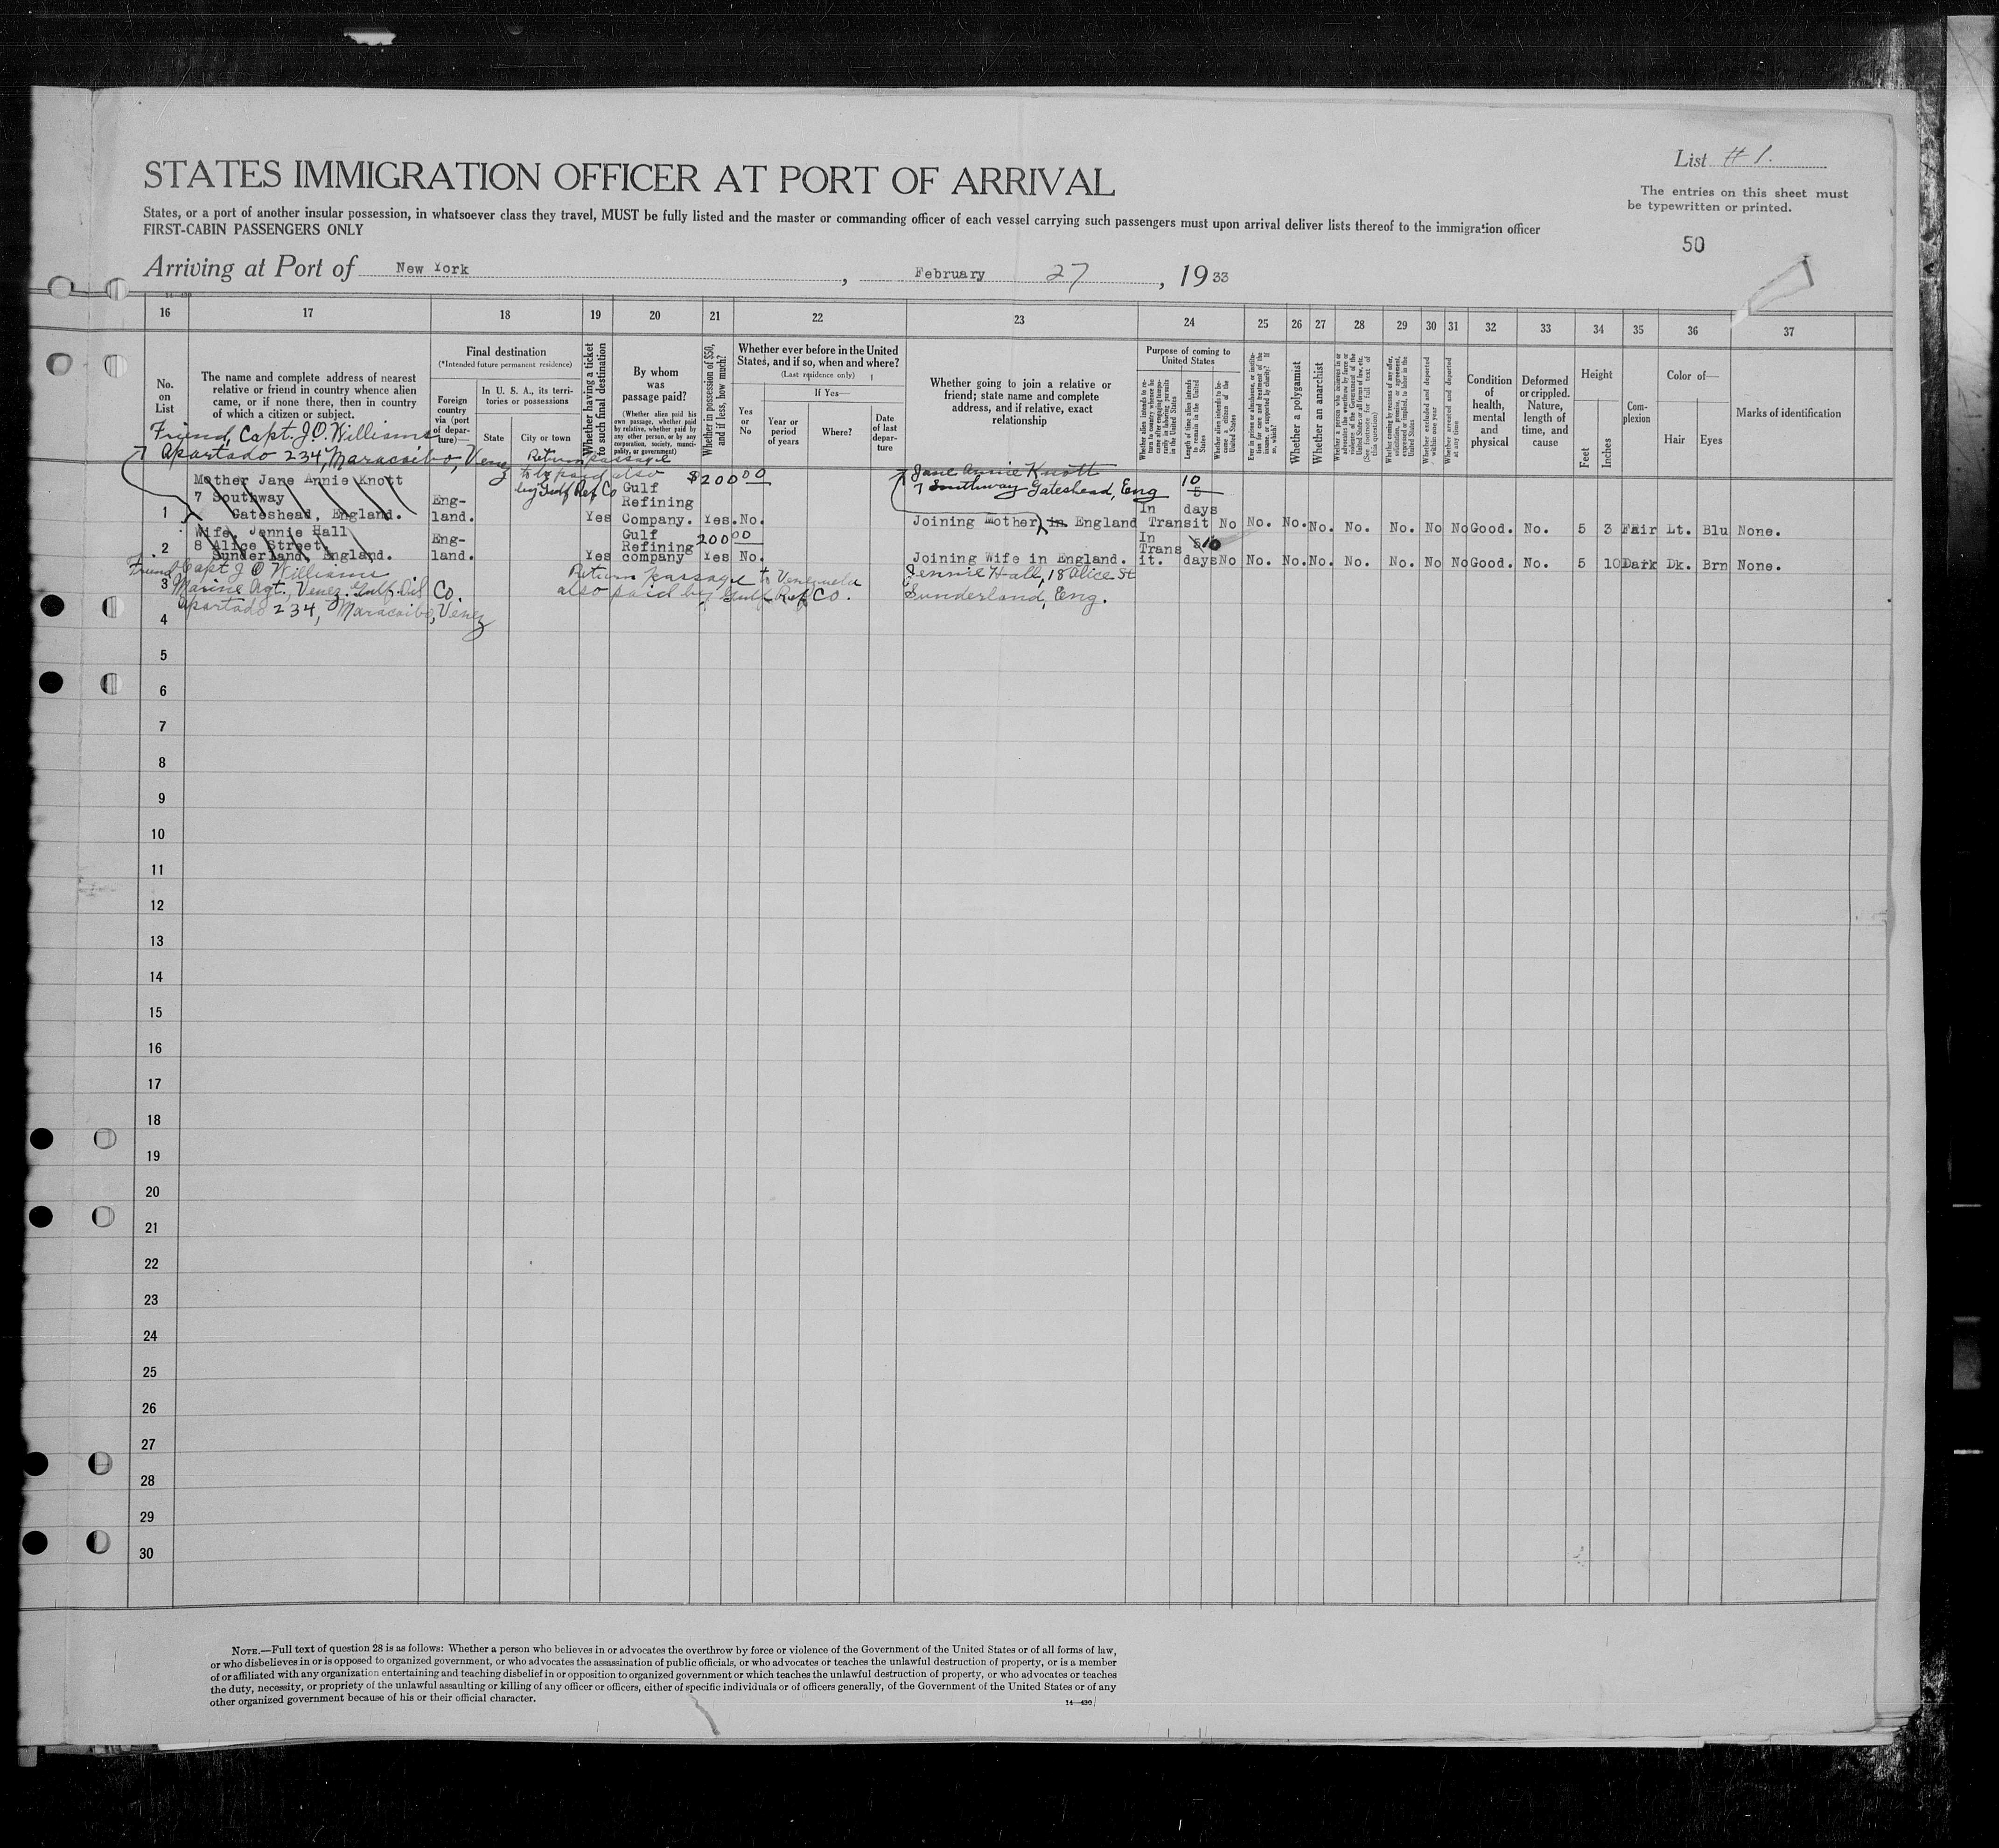 List # 1.
STATES IMMIGRATION OFFICER AT PORT OF ARRIVAL
The entries on this sheet must
be typewritten or printed.
States, or a port of another insular possession, in whatsoever class they travel, MUST be fully listed and the master or commanding officer of each vessel carrying such passengers must upon arrival deliver lists thereof to the immigration officer
FIRST-CABIN PASSENGERS ONLY
50
Arriving at Port of New York, February 27, 1933
16 17 18 19 20 21 22 23 24 25 26 27 28 29 30 31 32 33 34 35 36 37
No.
on
List
The name and complete address of nearest
relative or friend in country whence alien
came, or if none there, then in country
of which a citizen or subject.
Final destination
(*Intended future permanent residence)
Foreign
country
via (port
of depar-
ture)—
In U. S. A., its terri-
tories or possessions
State
City or town
Whether having a ticket
to such final destination
By whom
was
passage paid?
(Whether alien paid his
own passage, whether paid
by relative, whether paid by
any other person, or by any
corporation, society, munici-
pality, or government)
Whether in possession of $50,
and if less, how much?
Whether ever before in the United
States, and if so, when and where?
(Last residence only)
Yes
or
No
If Yes—
Year or
period
of years
Where?
Date
of last
depar-
ture
Whether going to join a relative or
friend; state name and complete
address, and if relative, exact
relationship
Purpose of coming to
United States
Length of time alien intends
to remain in the United
States
Whether alien intends to be-
come a citizen of the
United States
Whether a polygamist
Whether an anarchist
Whether excluded and deported
within one year
Whether arrested and deported
at any time
Condition
of
health,
mental
and
physical
Deformed
or crippled.
Nature,
length of
time, and
cause
Height
Feet
Inches
Com-
plexion
Color of—
Hair
Eyes
Marks of identification
Friend, Capt. J.O. Williams
Apartado 234, Maracaibo, Venez
Return passage
to be paid also
by Gulf Ref Co
$200 00
Jane Annie Knott
7 Southway Gateshead, Eng
10
Mother Jane Annie Knott
7 Southway
Gateshead, England.
1 Eng-
land. Yes Gulf
Refining
Company. Yes. No. Joining Mother, in England In
Transit 5
days No No. No. No. No. No. No No Good. No. 5 3 Fair Lt. Blu None.
Wife, Jennie Hall
8 Alice Street,
Sunderland, England.
2 Eng-
land. Yes Gulf
Refining
company 200 00
Yes No. Joining Wife in England. In
Trans
it. 5 10
days No No. No. No. No. No. No No Good. No. 5 10 Dark Dk. Brn None.
Friend Capt J O Williams
3 Marine Agt., Venez. Gulf Oil Co.
Apartado 234, Maracaibo, Venez
Return passage to Venezuela
also paid by Gulf Ref Co.
Jennie Hall, 18 Alice St
Sunderland, Eng.
4
5
6
7
8
9
10
11
12
13
14
15
16
17
18
19
20
21
22
23
24
25
26
27
28
29
30
NOTE.—Full text of question 28 is as follows: Whether a person who believes in or advocates the overthrow by force or violence of the Government of the United States or of all forms of law,
or who disbelieves in or is opposed to organized government, or who advocates the assassination of public officials, or who advocates or teaches the unlawful destruction of property, or is a member
of or affiliated with any organization entertaining and teaching disbelief in or opposition to organized government or which teaches the unlawful destruction of property, or who advocates or teaches
the duty, necessity, or propriety of the unlawful assaulting or killing of any officer or officers, either of specific individuals or of officers generally, of the Government of the United States or of any
other organized government because of his or their official character.
14—430